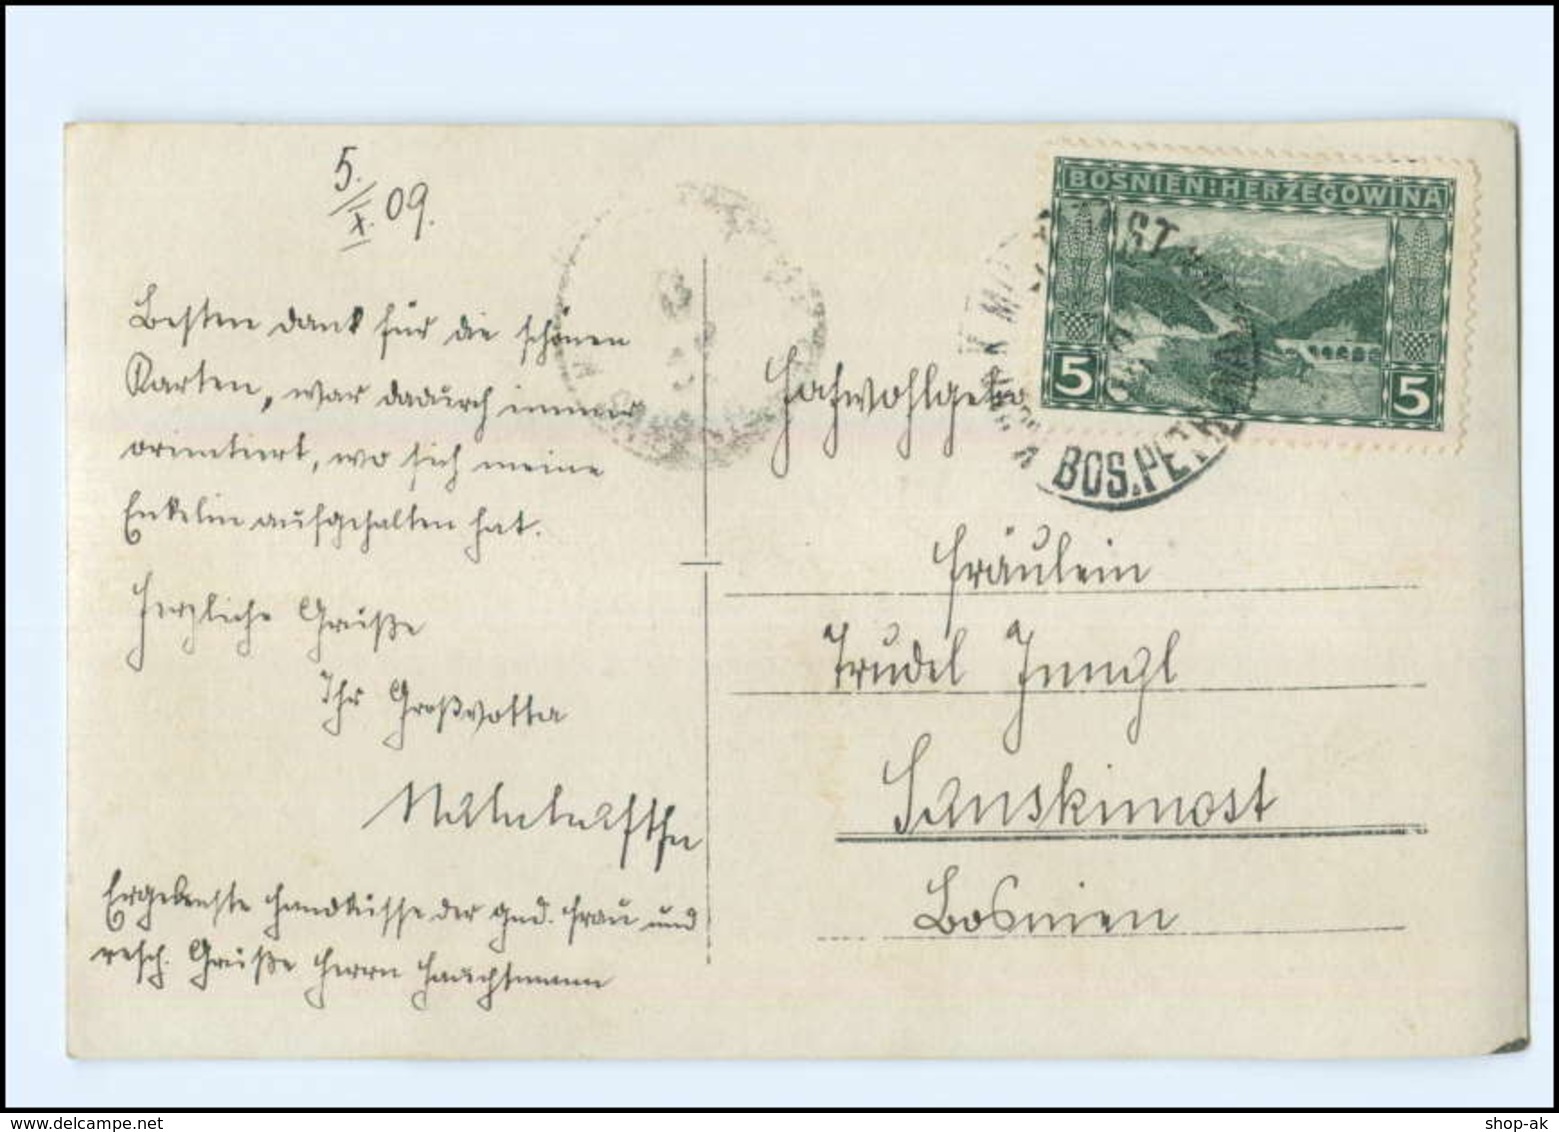 5./X. 09.
Besten Dank für die schönen
Karten, war dadurch immer
orientiert, wo sich meine
Enkelin aufgehalten hat.
Herzliche Grüße
Ihr Großvotta
Ergebenste Handküsse der gnd. Frau und
resp. Grüße Herrn Hauptmann
BOSNIEN:HERZEGOWINA
5
5
BOS.PETR
Hochwohlgebo
Fräulein
Trudel
Sanskimost
Bosnien
shop-ak